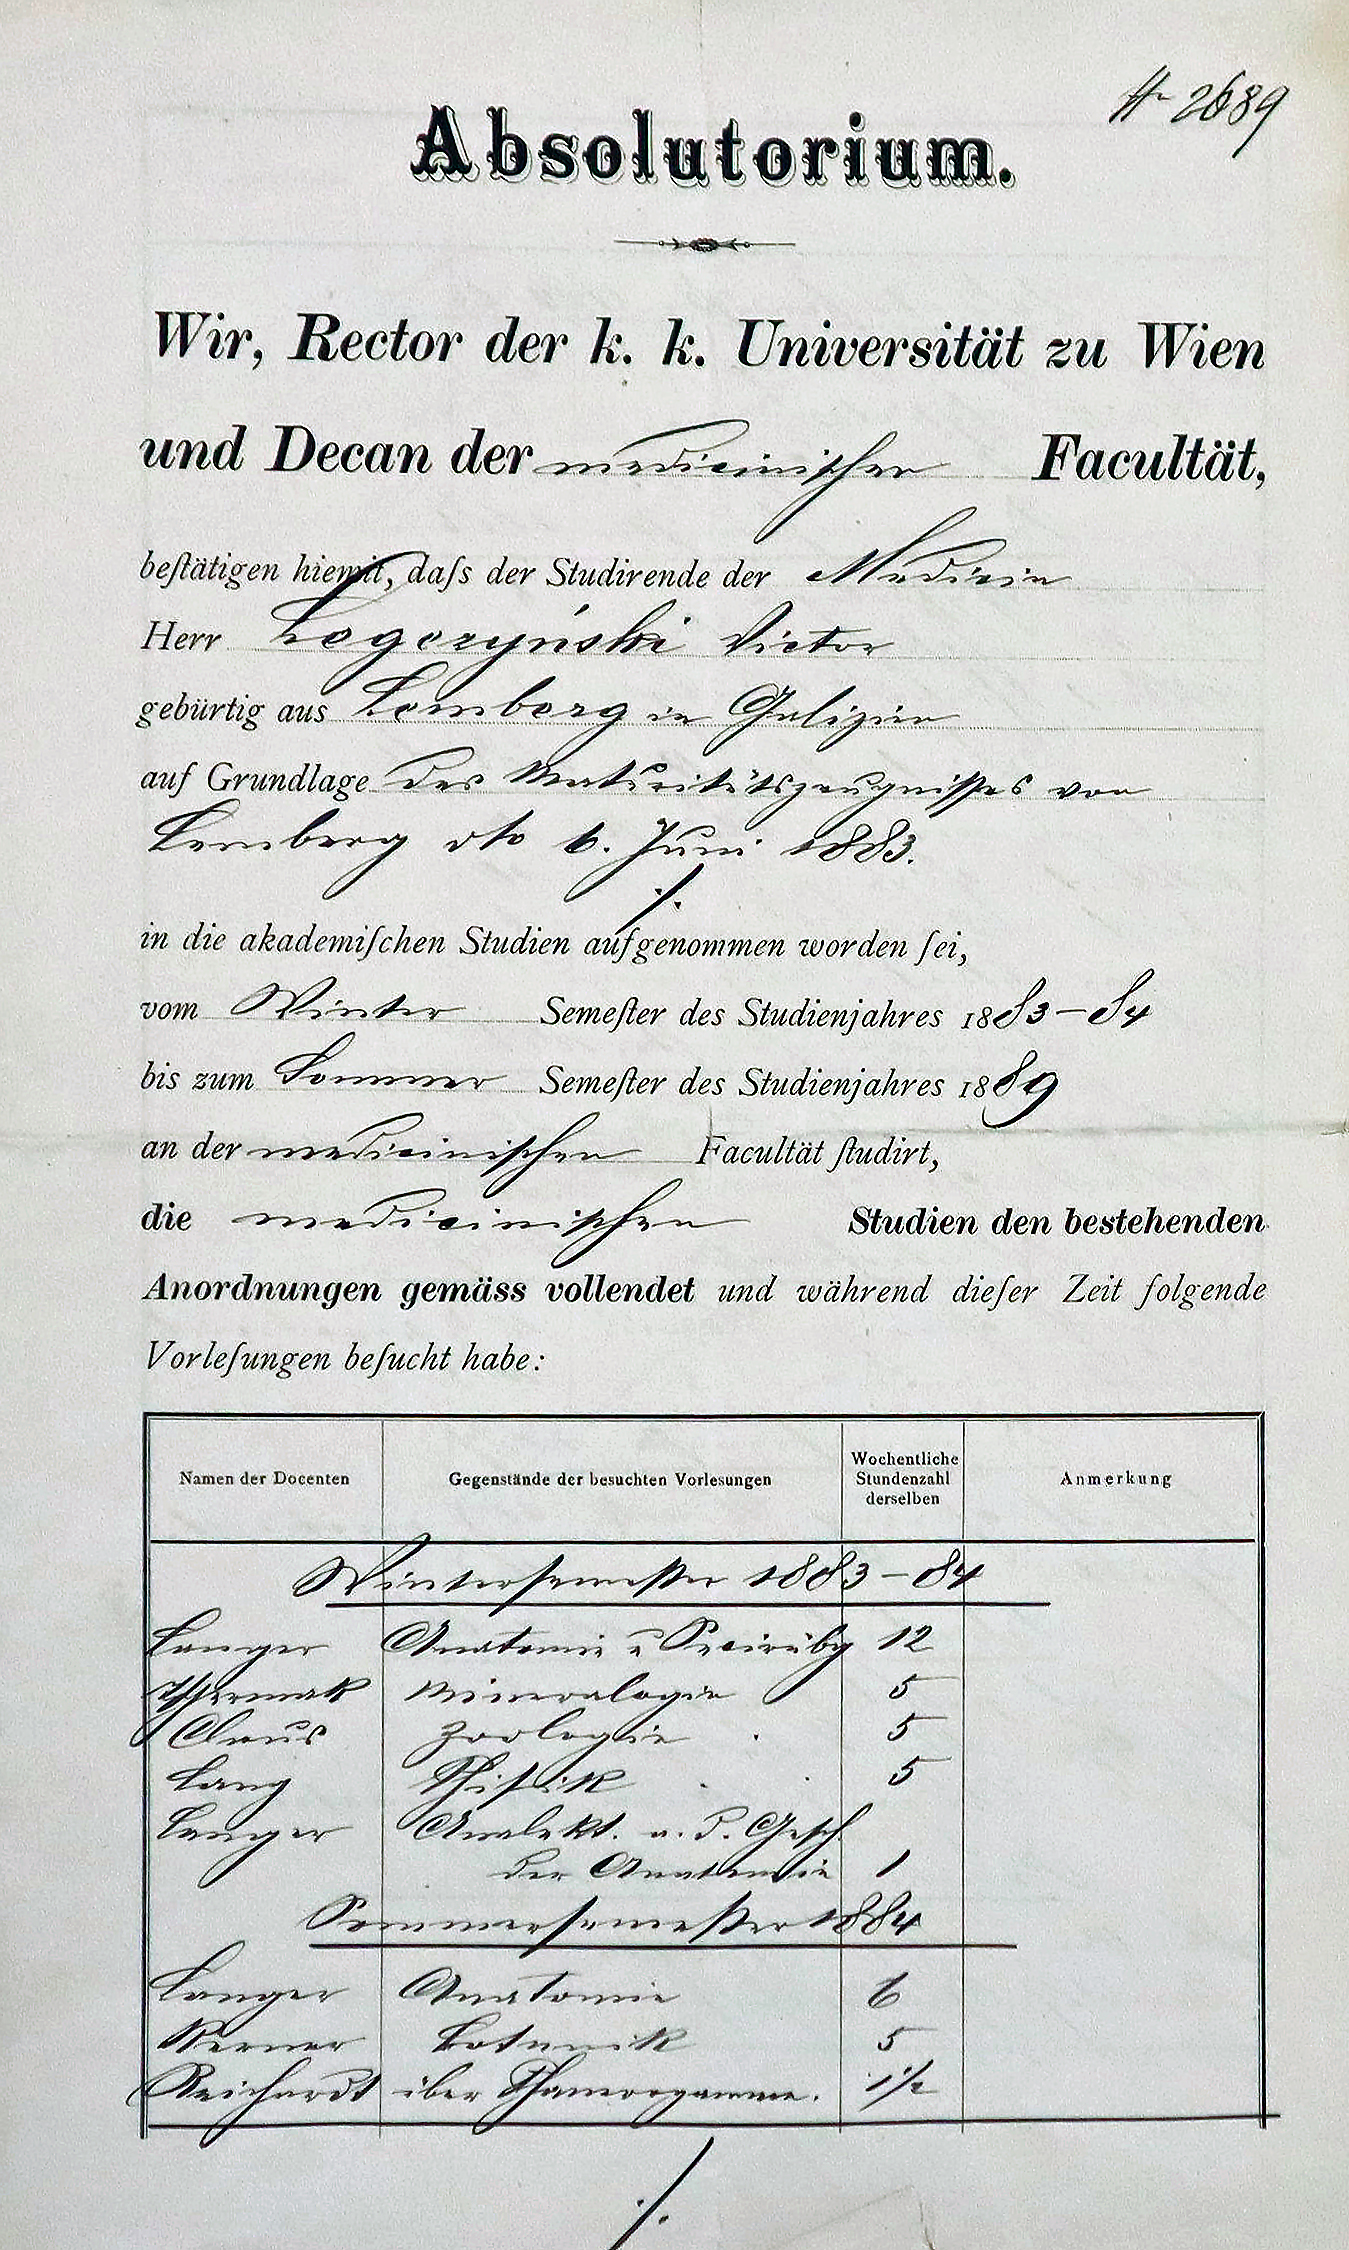 № 2689
Absolutorium.
Wir, Rector der k. k. Universität zu Wien
und Decan der medicinischen Facultät,
beſtätigen hiemit, daſs der Studirende der Medicin
Herr Victor
gebürtig aus Lemberg in Galizien
auf Grundlage des Maturitätszeugnisses von
Lemberg dto 6. Juni 1883.
./.
in die akademiſchen Studien aufgenommen worden ſei,
vom Winter Semeſter des Studienjahres 1883–84
bis zum Sommer Semeſter des Studienjahres 1889
an der medicinischen Facultät ſtudirt,
die medicinischen Studien den bestehenden
Anordnungen gemäss vollendet und während dieſer Zeit folgende
Vorleſungen beſucht habe:
Namen der Docenten Gegenstände der besuchten Vorlesungen Wochentliche Stundenzahl derselben Anmerkung
Wintersemester 1883–84
Langer Anatomie u Secirübg 12
Tschermak Mineralogie 5
Claus Zoologie 5
Lang Phisik 5
Langer Analekt. a. d. Gesch
der Anatomie 1
Sommersemester 1884
Langer Anatomie 6
Kerner Botanik 5
Reichardt über 1½
./.